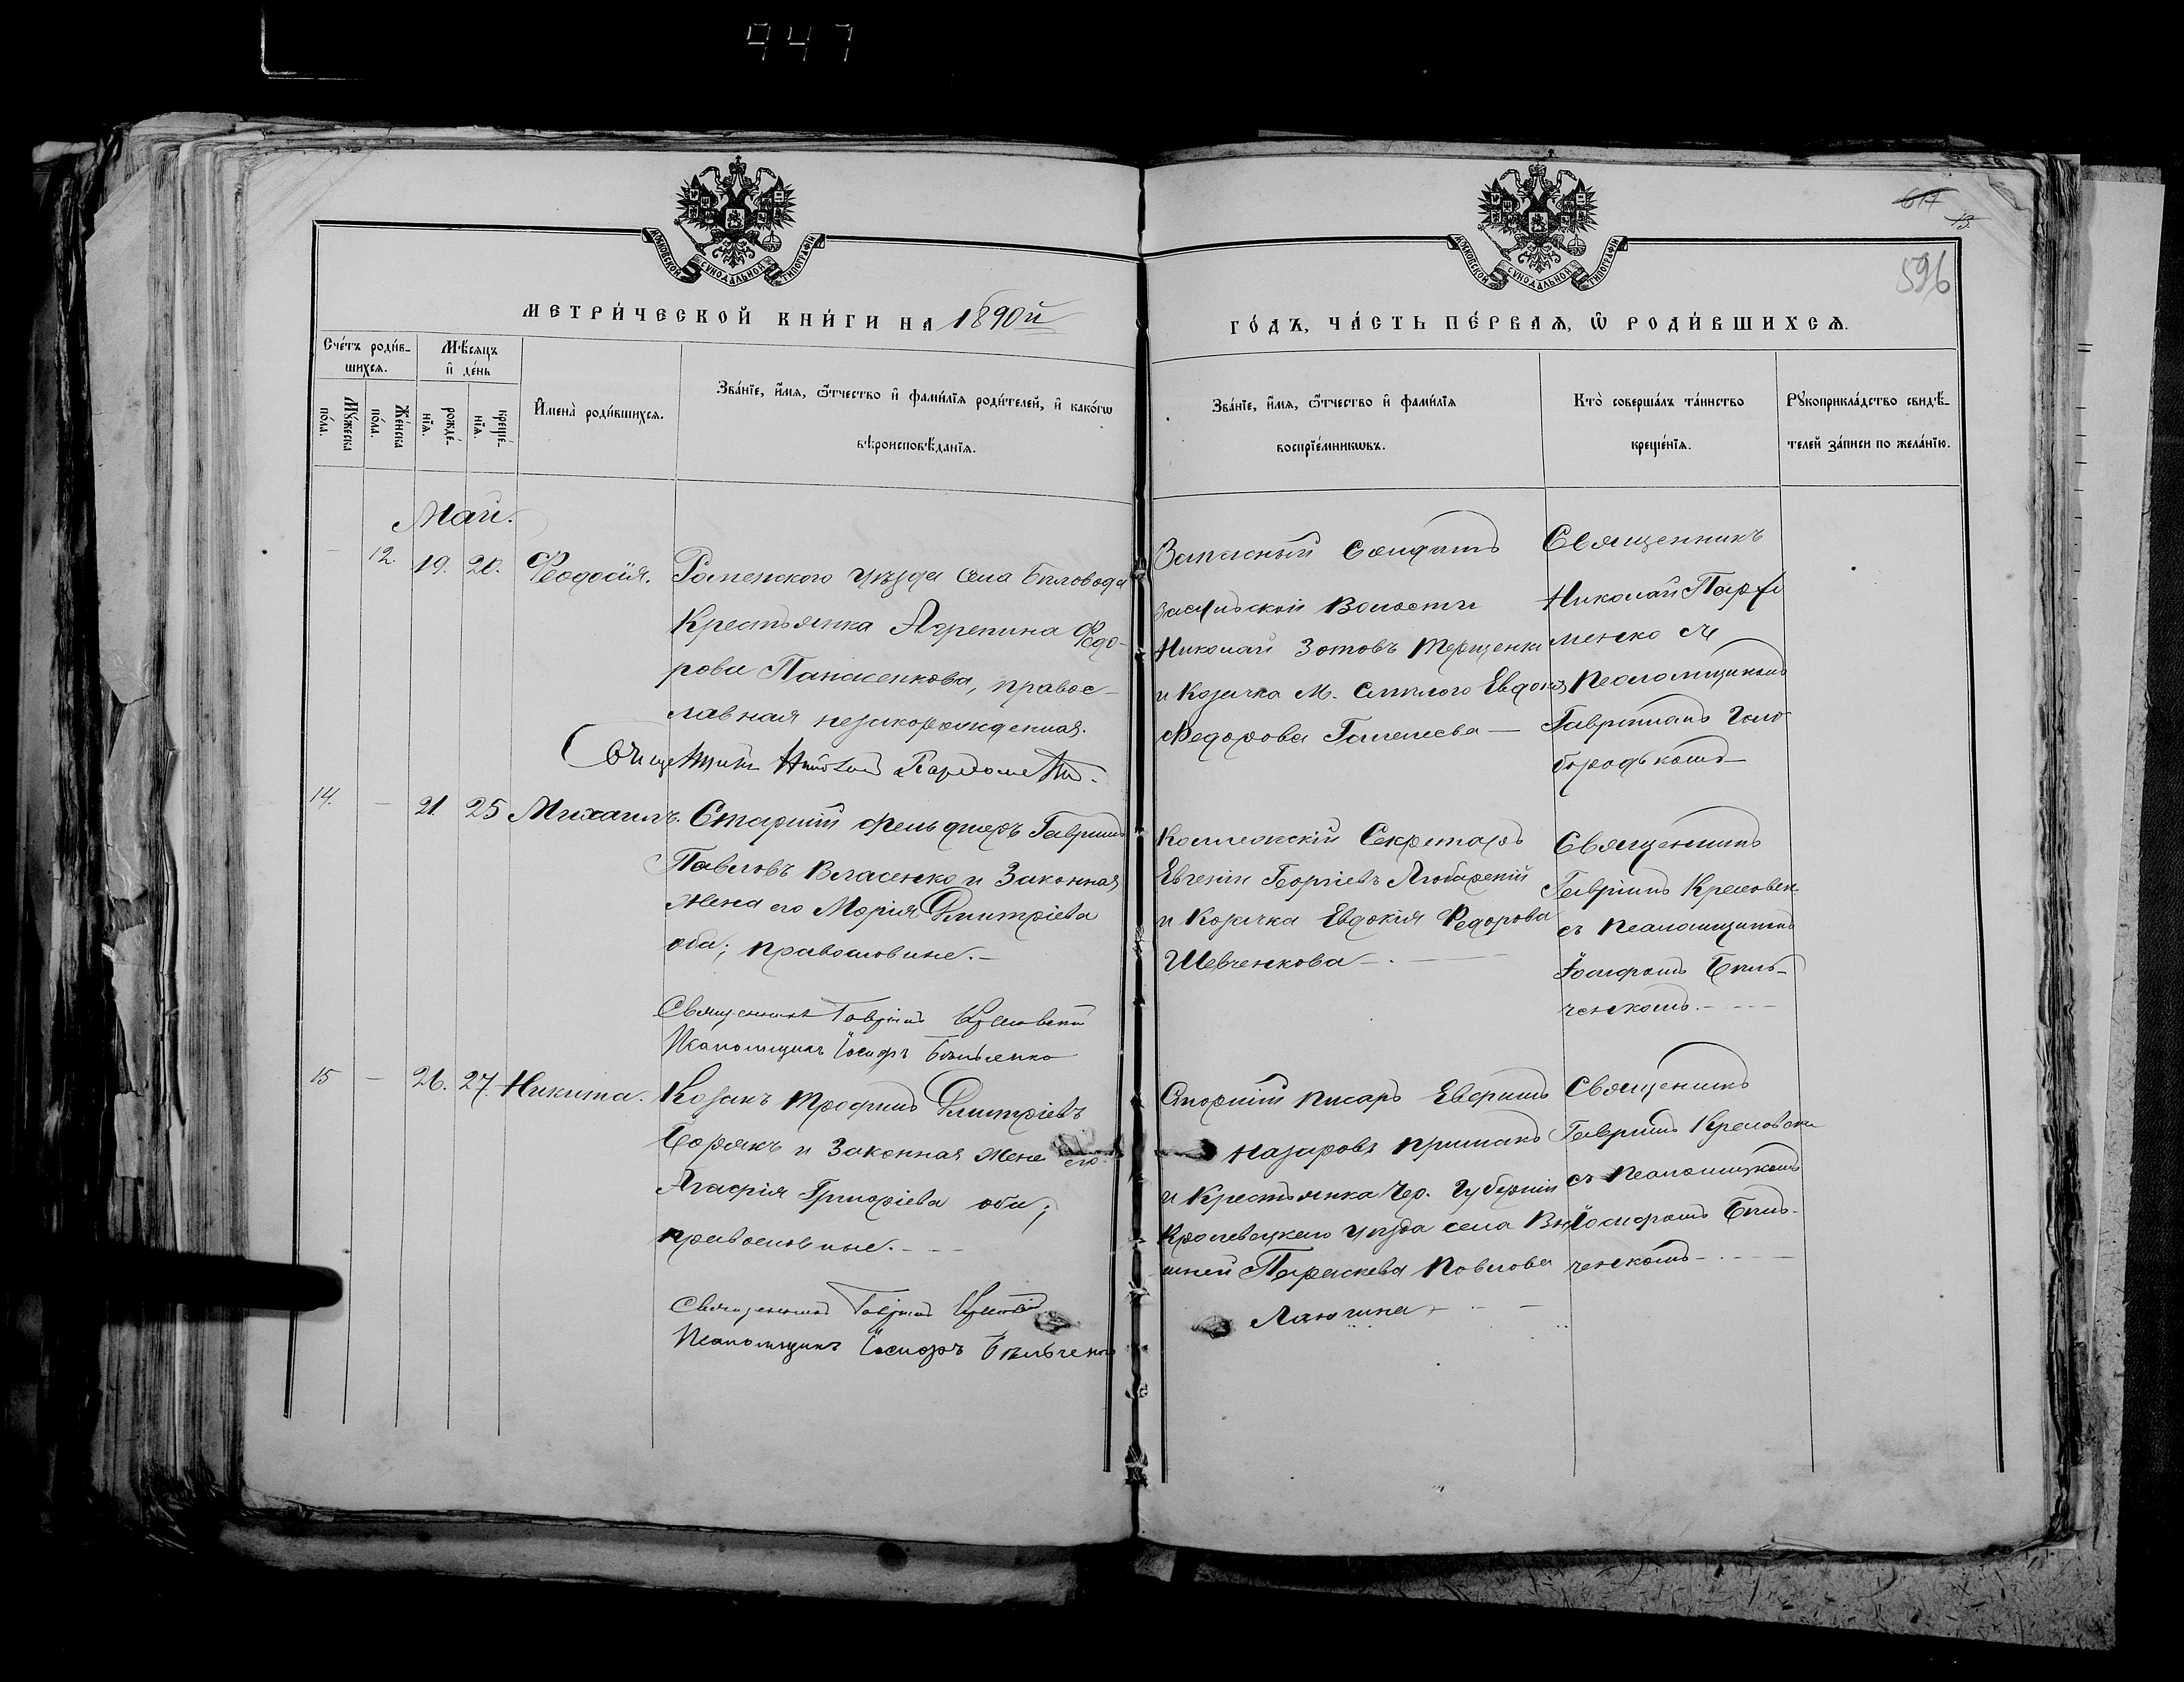 947
617
13.
596
МОСКОВСКОЙ СУНОДАЛЬНОЙ ТИПОГРАФІИ
МОСКОВСКОЙ СУНОДАЛЬНОЙ ТИПОГРАФІИ
МЕТРИ́ЧЕСКОЙ КНИ́ГИ НА 1890й
ГО́ДЪ, ЧА́СТЬ ПЕ́РВАѦ, Ѡ РОДИ́ВШИХСѦ.
Сче́тъ роди́в-
шихсѧ.
Мꙋ́жеска
по́ла.
Же́нска
по́ла.
Мѣ́сѧцъ
и де́нь
рожде́-
нїѧ.
креще́-
нїѧ.
Имена̀ роди́вшихсѧ.
Зва́нїе, и́мѧ, ѻ́тчество и фами́лїѧ роди́телей, и како́гѡ
вѣроисповѣ́данїѧ.
Зва́нїе, и́мѧ, ѻ́тчество и фами́лїѧ
воспрїе́мникѡвъ.
Кто̀ соверша́лъ та́инство
креще́нїѧ.
Рꙋкоприкла́дство свидѣ́-
телей за́писи по жела́нїю.
Май.
— 12. 19. 20. Феодосія.
Роменского уѣзда села Бѣловода
Крестьянка Агрепина Федо-
рова Панасенкова, правос-
лавная незакорожденная.
Священникъ Николай Пархоменко.
Запасный Солдатъ
Волости
Николай Зотовъ Терещенко
и Козачка М. Смѣлого Евдокія
Федорова Галенева —
Священникъ
Николай Пархо
менко съ
Псаломщикомъ
Гавріиломъ Голо
бородькомъ—
14. — 21. 25 Михаилъ.
Старшій фельдшеръ Гавріилъ
Павловъ Власенко и Законная
жена его Марія Дмитріева
оба; православные.—
Священникъ Гавріилъ Крыловскій
Псаломщикъ Іосифъ Бѣльченко
Коллежскій Секретарь
Евгеній Георгіевъ Любарскій
и Козачка Евдокія Федорова
Шевченкова—.—
Священникъ
Гавріилъ Крыловск.
съ Псаломщикомъ
Іосифомъ Бѣль-
ченкомъ.—
15 — 26. 27. Никита.
Козакъ Трофимъ Дмитріевъ
Борякъ и Законная жена его
Агафія Григоріева оба;
православные.—
Священникъ Гавріилъ Крыловскій
Псаломщикъ Іосифъ Бѣльченко
Старшій писарь
Назаровъ Примакъ
и Крестьянка Чер. Губерніи
Кролевецкаго уѣзда села
Параскева Павлова
Лаютина
Священникъ
Гавріилъ Крыловски
съ Псаломщикомъ
Іосифомъ Бѣль-
ченкомъ—